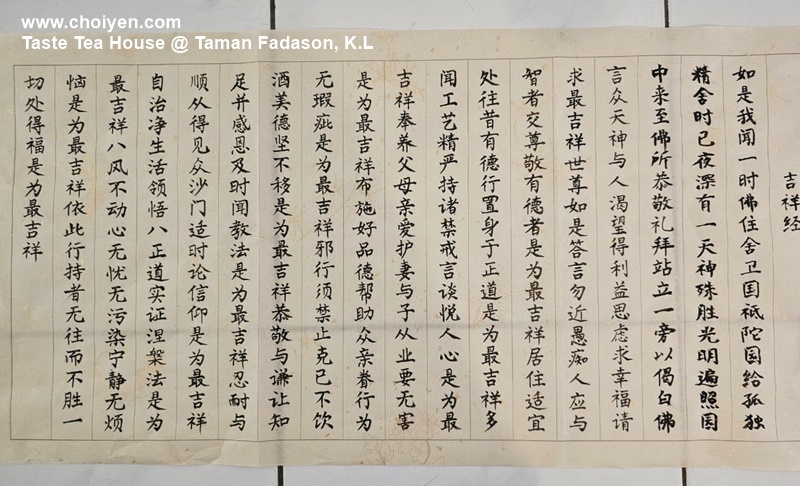 www.choiyen.com
Taste Tea House @ Taman Fadason, K.L
吉祥经
如是我闻一时佛住舍卫国祗陀园给孤独
精舍时已夜深有一天神殊胜光明遍照园
中来至佛所恭敬礼拜站立一旁以偈白佛
言众天神与人渴望得利益思虑求幸福请
求最吉祥世尊如是答言勿近愚痴人应与
智者交尊敬有德者是为最吉祥居住适宜
处往昔有德行置身于正道是为最吉祥多
闻工艺精严持诸禁戒言谈悦人心是为最
吉祥奉养父母亲爱护妻与子从业要无害
是为最吉祥布施好品德帮助众亲眷行为
无瑕疵是为最吉祥邪行须禁止克己不饮
酒美德坚不移是为最吉祥恭敬与谦让知
足并感恩及时闻教法是为最吉祥忍耐与
顺从得见众沙门适时论信仰是为最吉祥
自治净生活领悟八正道实证涅槃法是为
最吉祥八风不动心无忧无污染宁静无烦
恼是为最吉祥依此行持者无往而不胜一
切处得福是为最吉祥